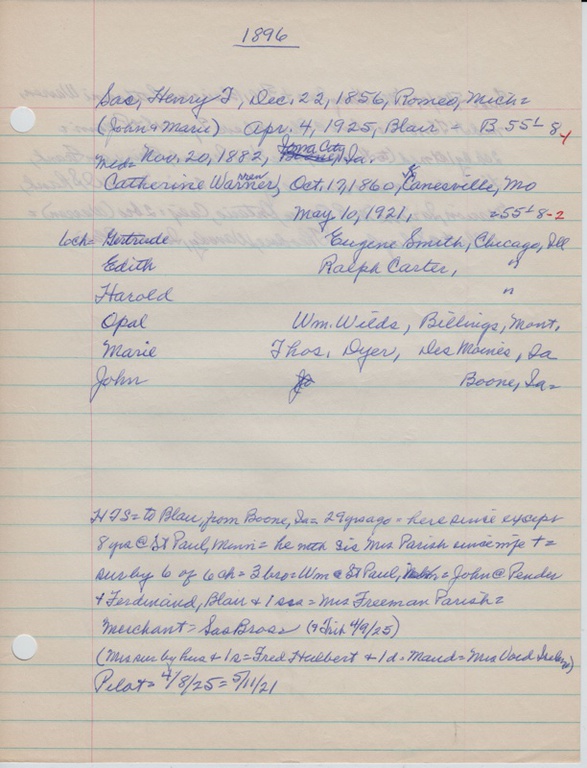 1896
Sas, Henry T, Dec. 22, 1856, Romeo, Mich=
(John & Marie) Apr. 4, 1925, Blair = B 55 L 8-1
Iowa City
med= Nov. 20, 1882, Ia.
Catherine Warner, Oct. 17, 1860, Kanesville, Mo
May 10, 1921, =55 L 8-2
6ch= Gertrude Eugene Smith, Chicago, Ill
Edith Ralph Carter, "
Harold "
Opal Wm. Wilds, Billings, Mont.
Marie Thos. Dyer, Des Moines, Ia
John Boone, Ia=
HTS= to Blair, from Boone, Ia= 29 yrs ago = here since except
8 yrs @ St Paul, Minn = he with sis Mrs Parish since wife +=
sur by 6 of 6 ch = 3 bro= Wm @ St Paul, = John @ Pender
& Ferdinand, Blair & 1 sis = Mrs Freeman Parish=
Merchant = Sas Bros= (& Trib 4/9/25)
(Mrs sur by hus & 1 s= Fred Hulbert & 1 d= Maud= Mrs
Pilot= 4/8/25= 5/11/21